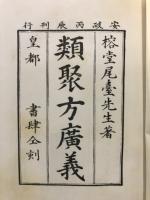 安政丙辰刊行
榕堂尾臺先生著
類聚方廣義
皇都　書肆仝刻